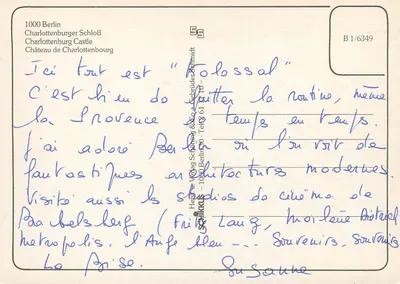 1000 Berlin
Charlottenburger Schloß
Charlottenburg Castle
Château de Charlottenbourg
B 1/6349
Ici tout est "Kolossal"
C'est bien de quitter la routine, même
la Provence de temps en temps.
J'ai adoré Berlin où l'on voit de
fantastiques architectures modernes.
Visité aussi les studios de cinéma de
Babelsberg (Fritz Lang, Marlène Dietrich
Metropolis, l'Ange bleu... Souvenirs, souvenirs
La Bise. Susanne
Schmidt
1000 Berlin